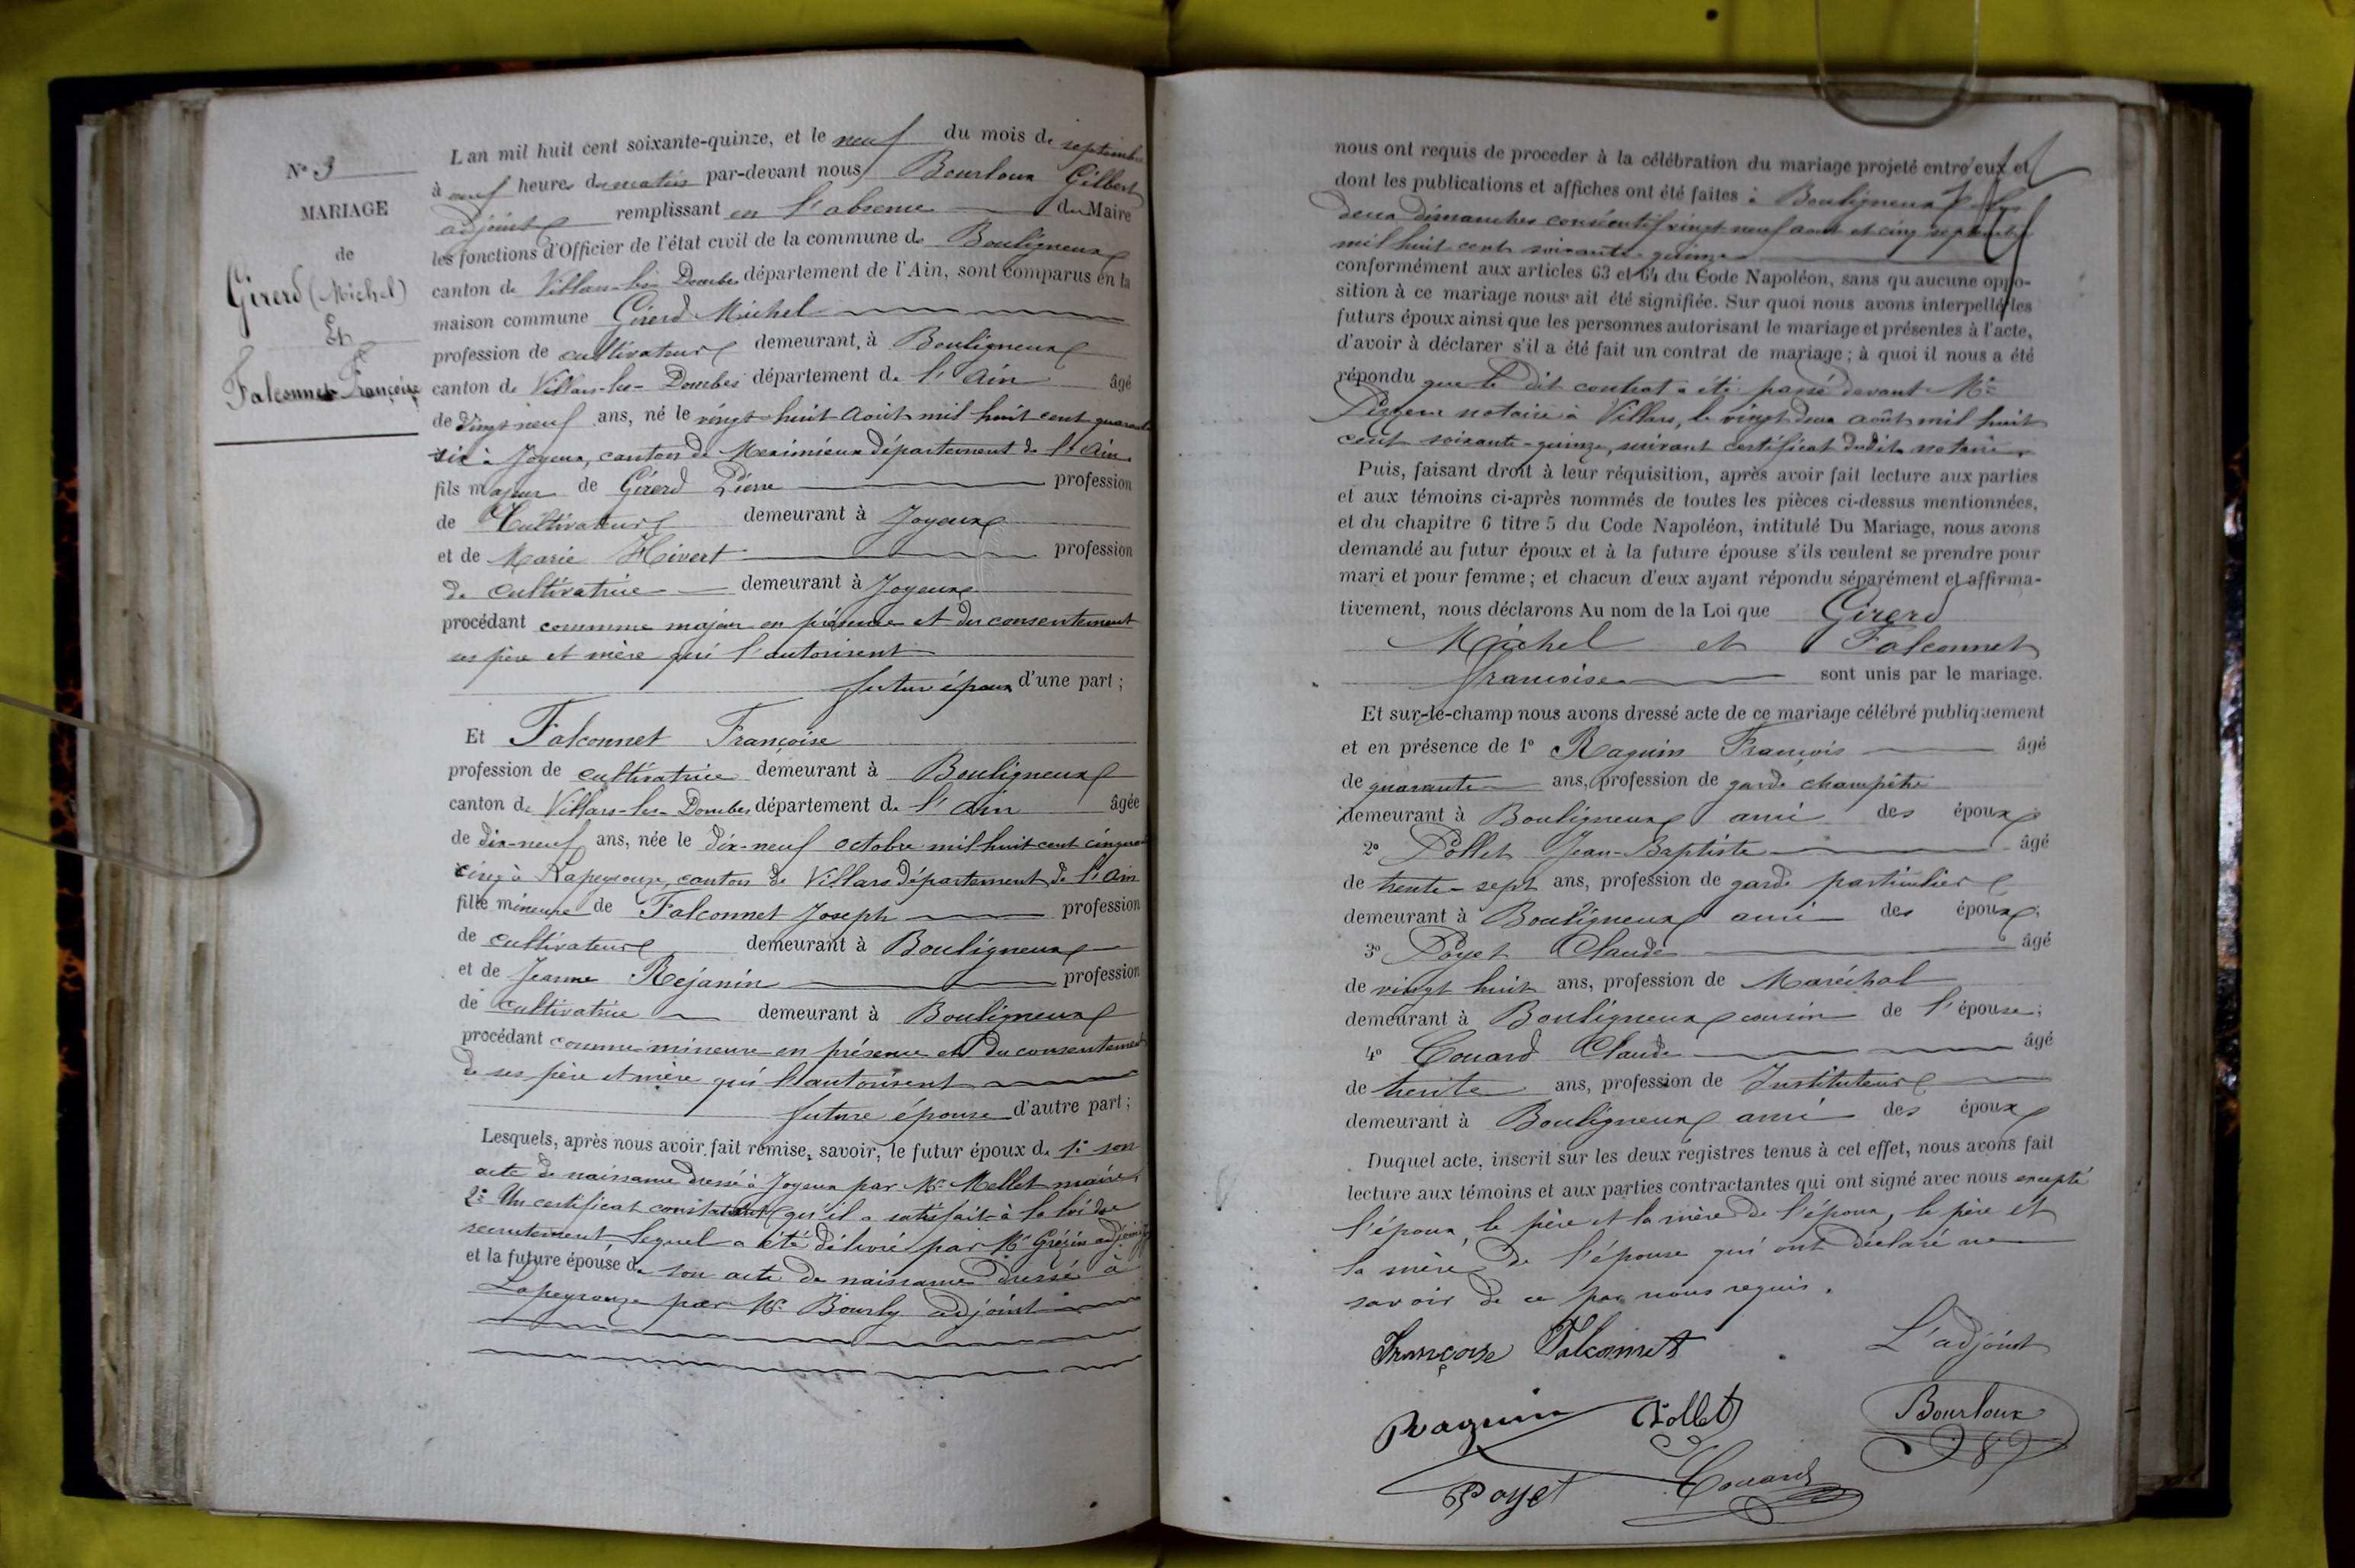 N° 3
MARIAGE
de
Girerd (Michel)
Et
Falconnet Françoise
L'an mil huit cent soixante-quinze, et le neuf du mois de septembre
à neuf heures du matin par-devant nous Bourloux Gilbert
adjoint remplissant en l'absence du Maire
les fonctions d'Officier de l'état civil de la commune de Bouligneux
canton de Villars-les-Dombes département de l'Ain, sont comparus en la
maison commune Girerd Michel
profession de cultivateur demeurant à Bouligneux
canton de Villars-les-Dombes département de l'Ain âgé
de vingt neuf ans, né le vingt-huit août mil huit cent quarante
six à Joyeux, canton de Meximieux département de l'Ain
fils majeur de Girerd Pierre profession
de Cultivateur demeurant à Joyeux
et de Marie Hivert profession
de cultivatrice demeurant à Joyeux
procédant comme majeur en présence et du consentement
ses père et mère qui l'autorisent
futur époux d'une part ;
Et Falconnet Françoise
profession de cultivatrice demeurant à Bouligneux
canton de Villars-les-Dombes département de l'Ain âgée
de dix-neuf ans, née le dix-neuf octobre mil huit cent cinquante
cinq à Lapeyrouse, canton de Villars département de l'Ain
fille mineure de Falconnet Joseph profession
de cultivateur demeurant à Bouligneux
et de Jeanne Rejanin profession
de cultivatrice demeurant à Bouligneux
procédant comme mineure en présence et du consentement
de ses père et mère qui l'autorisent
future épouse d'autre part ;
Lesquels, après nous avoir fait remise, savoir, le futur époux de 1° son
acte de naissance dressé à Joyeux par Mr Mellet maire,
2° Un certificat constatant qu'il a satisfait à la loi de
recrutement lequel a été délivré par Mr Grézin adjoint
et la future épouse de son acte de naissance dressé à
Lapeyrouze par Mr Bourly adjoint
nous ont requis de procéder à la célébration du mariage projeté entre eux et
dont les publications et affiches ont été faites à Bouligneux les
deux dimanches consécutifs vingt neuf août et cinq septembre
mil huit cent soixante-quinze
conformément aux articles 63 et 64 du Code Napoléon, sans qu'aucune oppo-
sition à ce mariage nous ait été signifiée. Sur quoi nous avons interpellé les
futurs époux ainsi que les personnes autorisant le mariage et présentes à l'acte,
d'avoir à déclarer s'il a été fait un contrat de mariage ; à quoi il nous a été
répondu que le dit contrat a été passé devant Me
notaire à Villars, le vingt deux août mil huit
cent soixante-quinze, suivant certificat dudit notaire.
Puis, faisant droit à leur réquisition, après avoir fait lecture aux parties
et aux témoins ci-après nommés de toutes les pièces ci-dessus mentionnées,
et du chapitre 6 titre 5 du Code Napoléon, intitulé Du Mariage, nous avons
demandé au futur époux et à la future épouse s'ils veulent se prendre pour
mari et pour femme ; et chacun d'eux ayant répondu séparément et affirma-
tivement, nous déclarons Au nom de la Loi que Girerd
Michel et Falconnet
Francoise sont unis par le mariage.
Et sur-le-champ nous avons dressé acte de ce mariage célébré publiquement
et en présence de 1° Raguin François âgé
de quarante ans, profession de garde champêtre
demeurant à Bouligneux ami des époux
2° Pollet Jean-Baptiste âgé
de trente-sept ans, profession de garde particulier
demeurant à Bouligneux ami des époux ;
3° Poyet Claude âgé
de vingt huit ans, profession de Maréchal
demeurant à Bouligneux cousin de l'épouse ;
4° Couard Claude âgé
de trente ans, profession de Instituteur
demeurant à Bouligneux ami des époux
Duquel acte, inscrit sur les deux registres tenus à cet effet, nous avons fait
lecture aux témoins et aux parties contractantes qui ont signé avec nous excepté
l'époux, le père et la mère de l'époux, le père et
la mère de l'épouse qui ont déclaré ne
savoir de ce par nous requis.
Françoise Falconnet
L'adjoint
Raguin Pollet Bourloux
Poyet Couard